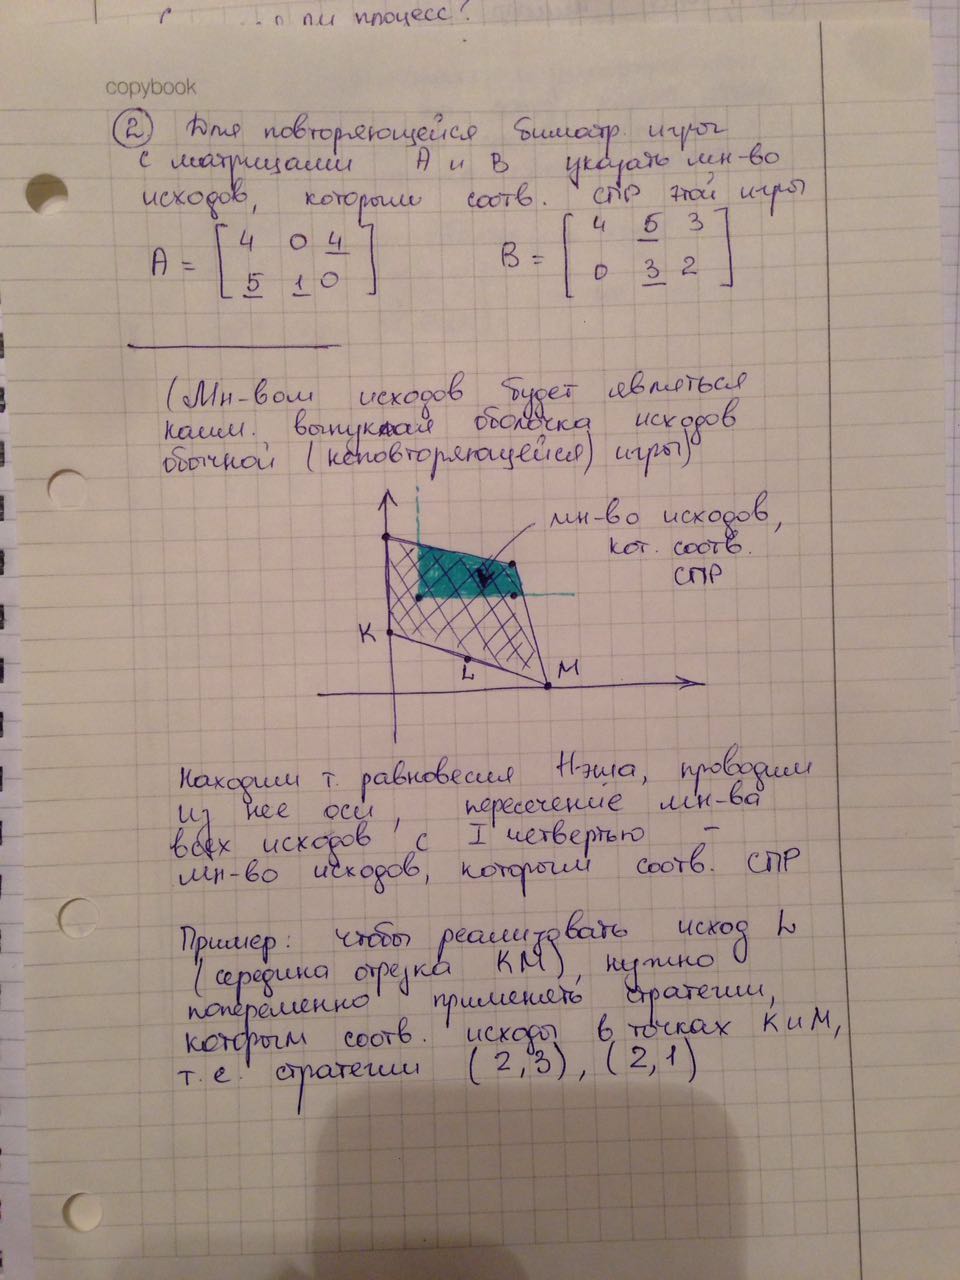 пи процесс?
copybook
② Для повторяющейся биматр. игры
с матрицами A и B указать мн-во
исходов, которым соотв. СПР этой игры
A = [ 4 0 4 5 1 0 ] B = [ 4 5 3 0 3 2 ]
(Мн-вом исходов будет являться
наим. выпуклая оболочка исходов
обычной (неповторяющейся) игры)
мн-во исходов,
кот. соотв.
СПР
K
L
M
Находим т. равновесия Нэша, проводим
из нее оси, пересечение мн-ва
всех исходов с I четвертью –
мн-во исходов, которым соотв. СПР
Пример: чтобы реализовать исход L
(середина отрезка KM), нужно
попеременно применять стратегии,
которым соотв. исходы в точках K и M,
т.е. стратегии (2,3), (2,1)